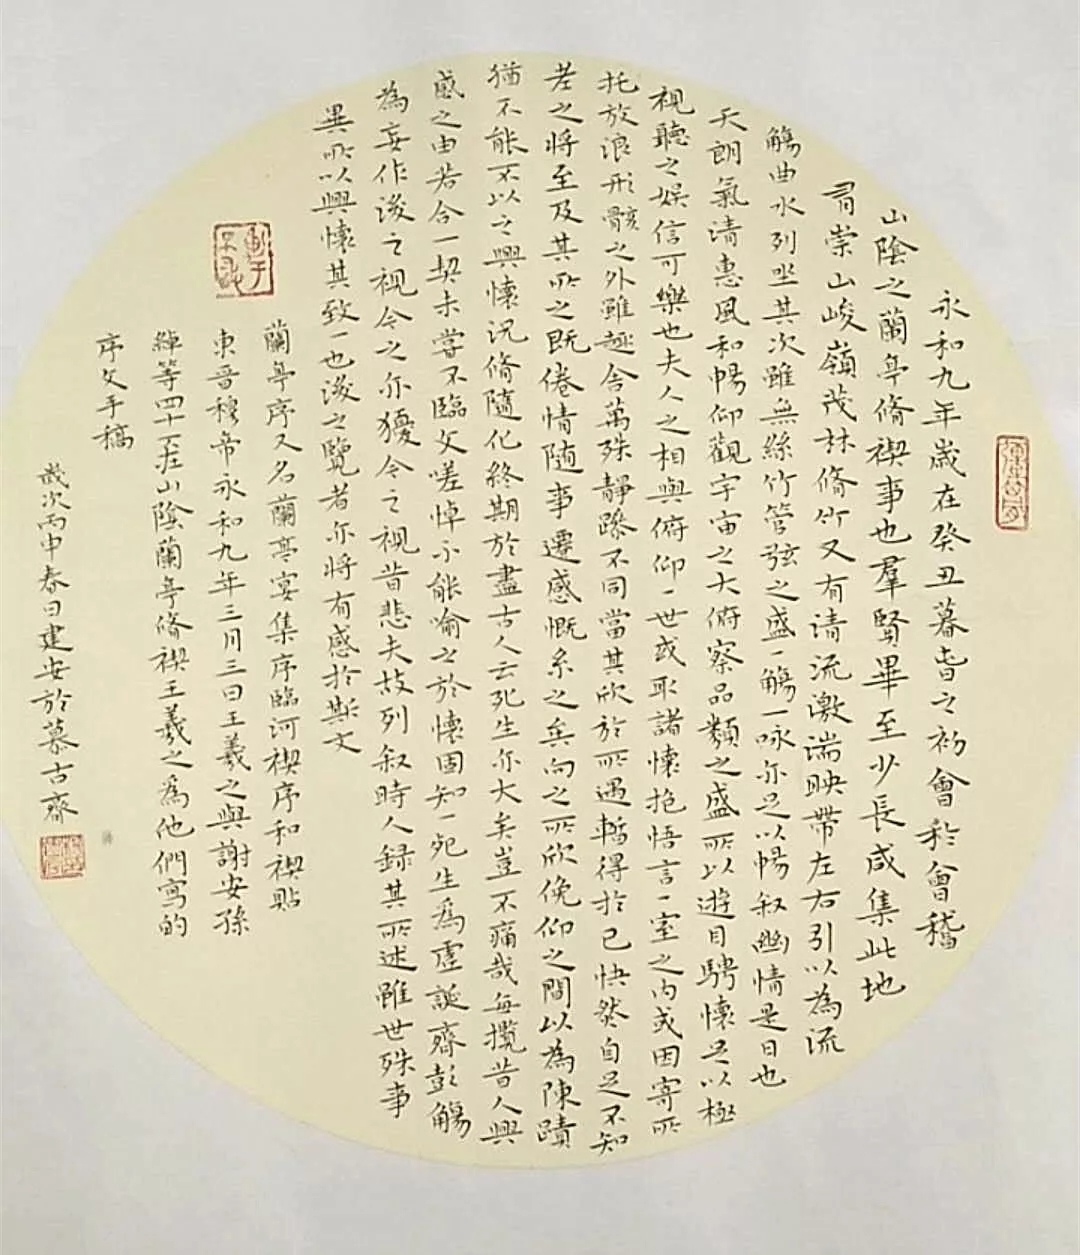 永和九年歲在癸丑暮春之初會於會稽
山陰之蘭亭脩禊事也羣賢畢至少長咸集此地
有崇山峻嶺茂林脩竹又有清流激湍映帶左右引以為流
觴曲水列坐其次雖無絲竹管弦之盛一觴一咏亦足以暢叙幽情是日也
天朗氣清惠風和暢仰觀宇宙之大俯察品類之盛所以遊目騁懷足以極
視聽之娛信可樂也夫人之相與俯仰一世或取諸懷抱悟言一室之內或因寄所
托放浪形骸之外雖趣舍萬殊靜躁不同當其欣於所遇暫得於己快然自足不知
老之將至及其所之既倦情隨事遷感慨系之矣向之所欣俛仰之間以為陳蹟
猶不能不以之興懷況脩隨化終期於盡古人云死生亦大矣豈不痛哉每攬昔人興
感之由若合一契未嘗不臨文嗟悼不能喻之於懷固知一死生為虛誕齊彭觴
為妄作後之視今亦猶今之視昔悲夫故列叙時人録其所述雖世殊事
異所以興懷其致一也後之覽者亦將有感於斯文
蘭亭序又名蘭亭宴集序臨河禊序和禊貼
東晉穆帝永和九年三月三日王羲之與謝安孫
綽等四十一在山陰蘭亭脩禊王羲之為他們寫的
序文手稿
歲次丙申春日建安於慕古齋